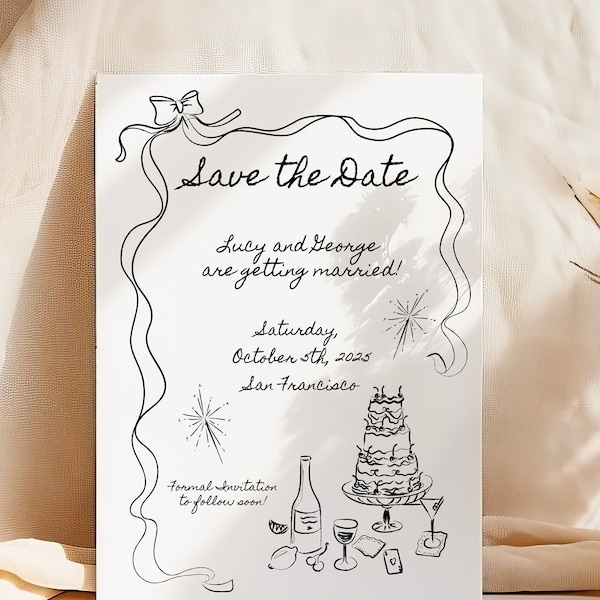 Save the Date
Lucy and George
are getting married!
Saturday,
October 5th, 2025
San Francisco
Formal Invitation
to follow soon!